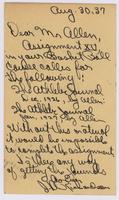 Aug 30.37
Dear Mr. Allen,
Assignment XV
in your Basket Ball
Course calls for
the following:
The Athletic Journal
Dec. 1926, by Allen:
The Athletic Journal
Jan. 1927, by Allen
Without this material
it would be impossible
to complete the assignment.
Is there any way
of getting the journals